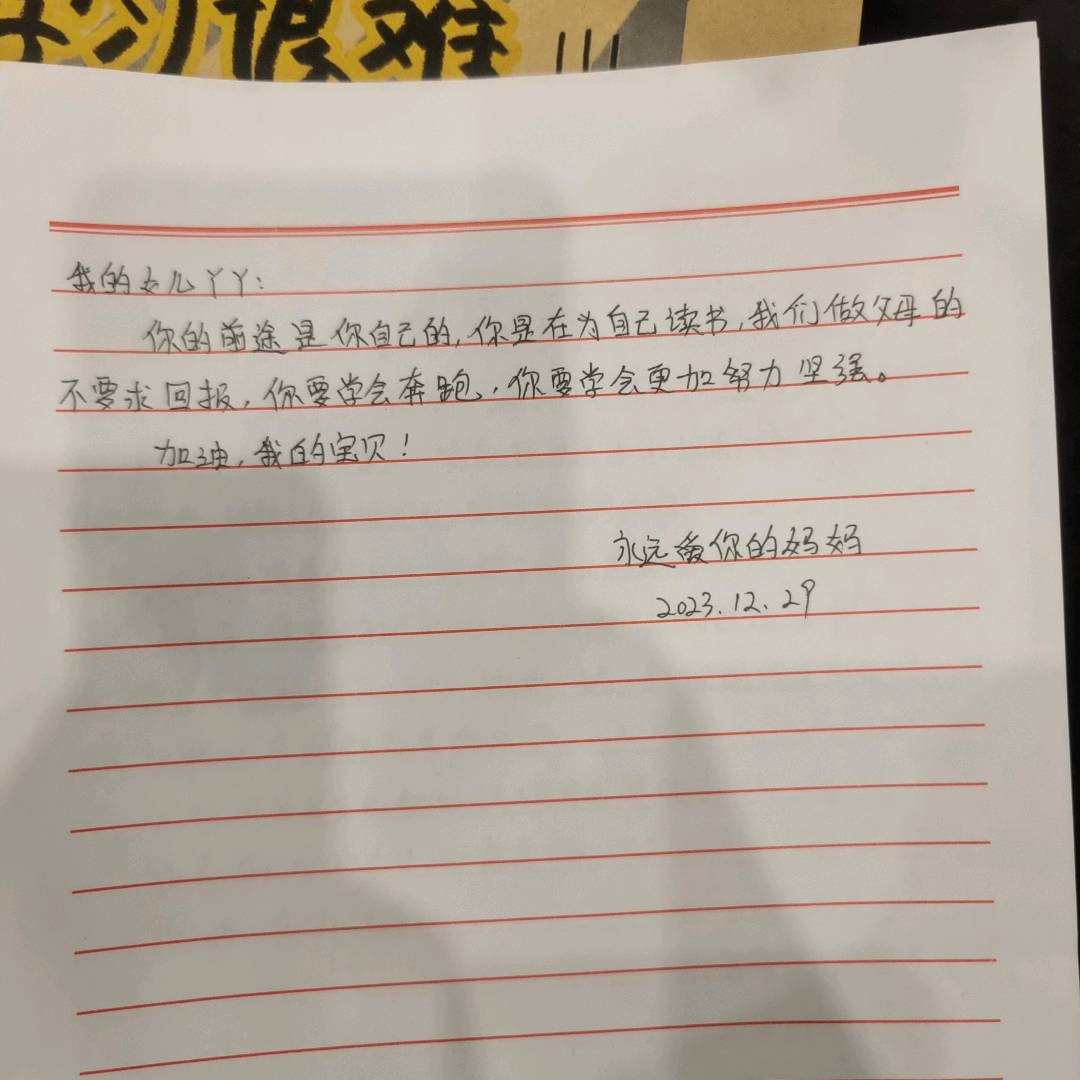 习很难
我的女儿丫丫:
你的前途是你自己的,你是在为自己读书,我们做父母的
不要求回报,你要学会奔跑,你要学会更加努力坚强。
加油,我的宝贝!
永远爱你的妈妈
2023.12.29